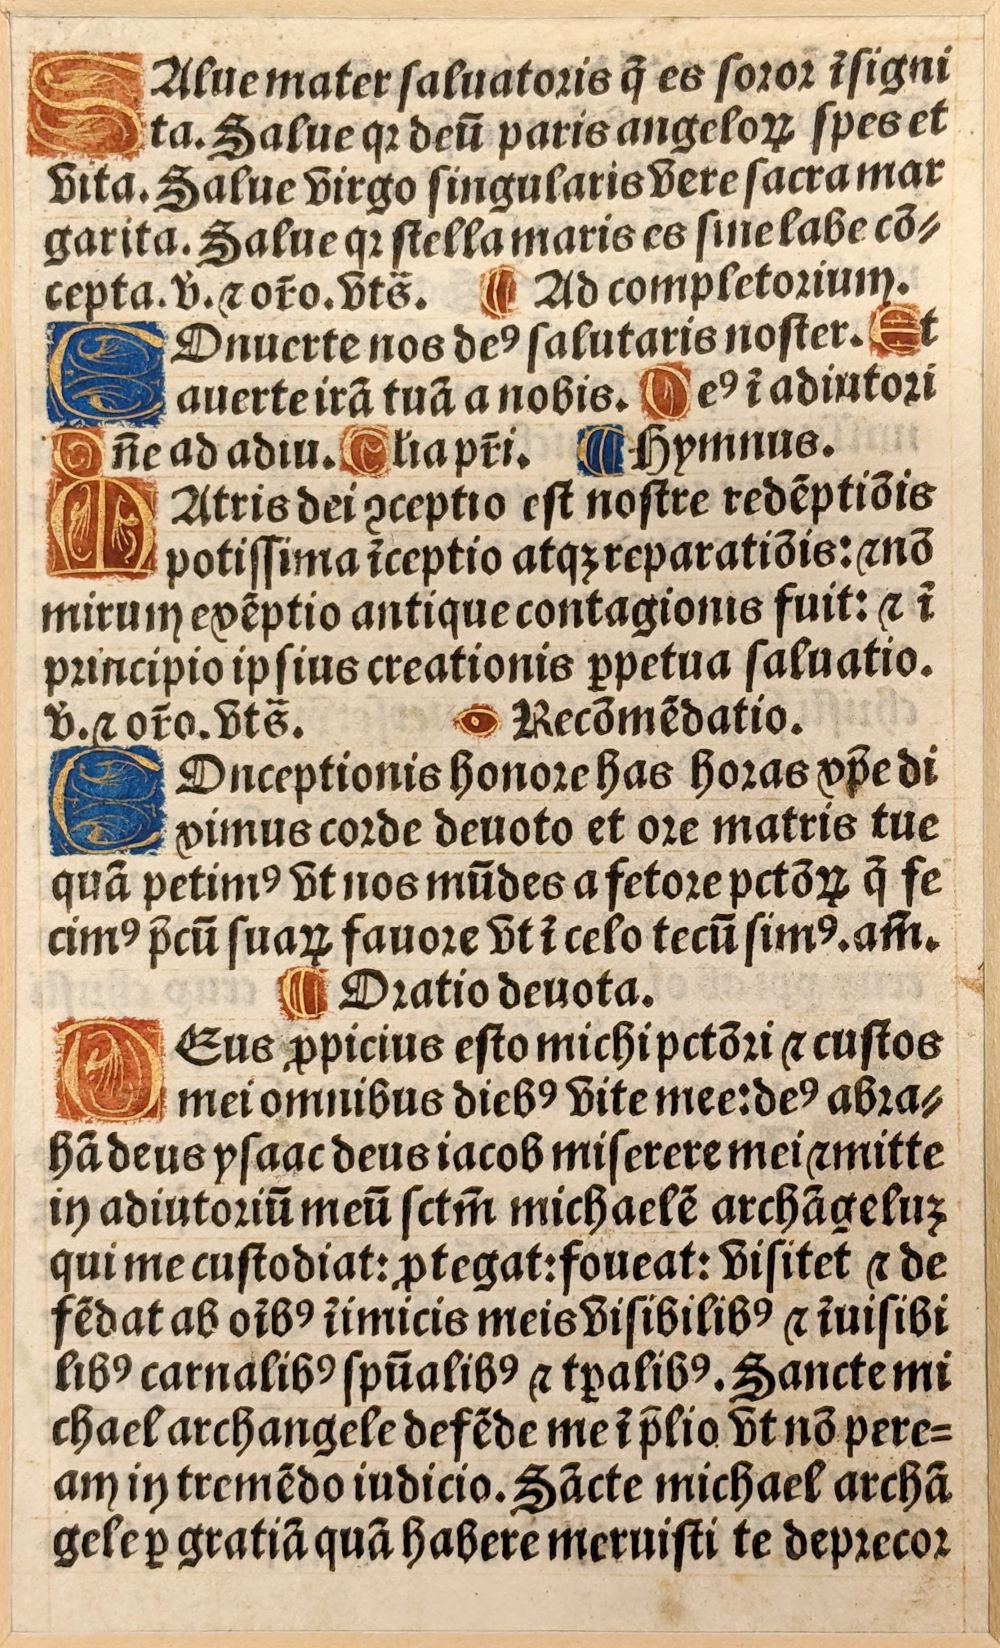 SAlue mater saluatoris q̄ es soror īsigni
ta. Salue qꝛ deū paris angeloꝝ spes et
vita. Salue virgo singularis vere sacra mar
garita. Salue qꝛ stella maris es sine labe cō⸗
cepta. v̄. ⁊ or̄o. vts̄. ¶ Ad completorium.
COnuerte nos deꝰ salutaris noster. Et
auerte irā tuā a nobis. Deꝰ ī adiutori
O n̄e ad adiu. Glia pr̄i. ¶ Hymnus.
MAtris dei ꝯceptio est nostre redēptiōis
potissima īceptio atqꝫ reparatiōis: ⁊ nō
mirum exēptio antique contagionis fuit: ⁊ ī
principio ipsius creationis ꝑpetua saluatio.
v̄. ⁊ or̄o. vts̄. Recōmēdatio.
COnceptionis honore has horas xp̄e di
ximus corde deuoto et ore matris tue
quā petimꝰ vt nos mūdes a fetore pctōꝝ q̄ fe
cimꝰ p̄cū suaꝝ fauore vt ī celo tecū simꝰ. am̄.
¶ Oratio deuota.
DEus ꝓpicius esto michi pctōri ⁊ custos
mei omnibus diebꝰ vite mee: deꝰ abra⸗
hā deus ysaac deus iacob miserere mei ⁊ mitte
in adiutoriū meū sctm̄ michaelē archāgeluꝫ
qui me custodiat: ꝓtegat: foueat: visitet ⁊ de
fēdat ab oībꝰ īimicis meis visibilibꝰ ⁊ īuisibi
libꝰ carnalibꝰ spūalibꝰ ⁊ tꝑalibꝰ. Sancte mi
chael archangele defēde me ī p̄lio vt nō pere=
am in tremēdo iudicio. Sācte michael archā
gele ꝑ gratiā quā habere meruisti te deprecor